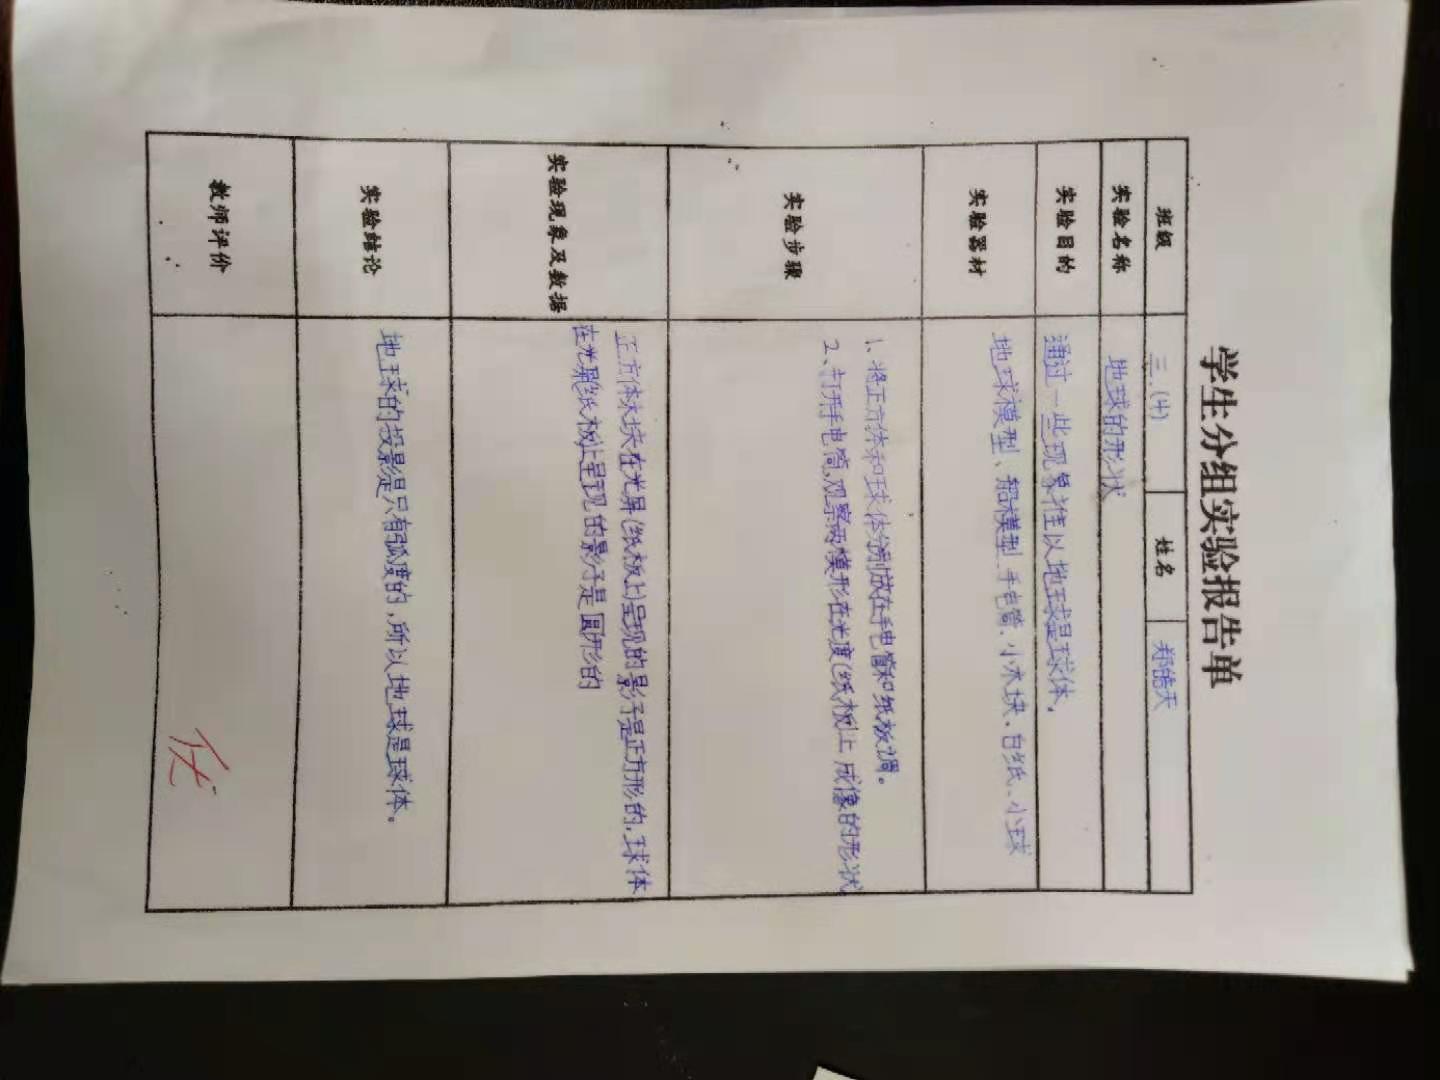 学生分组实验报告单
班级 三.(4) 姓名 郑皓天
实验名称 地球的形状
实验目的 通过一些现象推以地球是球体.
实验器材 地球模型、船模型、手电筒、小木块、白纸、小球
实验步骤
1、将正方体和球体分别放在手电筒和纸板间。
2、打开手电筒,观察两模形在光度(纸板)上成像的形状
实验现象及数据
正方体木块在光屏(纸板上)呈现的影子是正方形的,球体
在光屏(纸板)上呈现的影子是圆形的
实验结论 地球的投影是只有弧度的,所以地球是球体.
教师评价 优